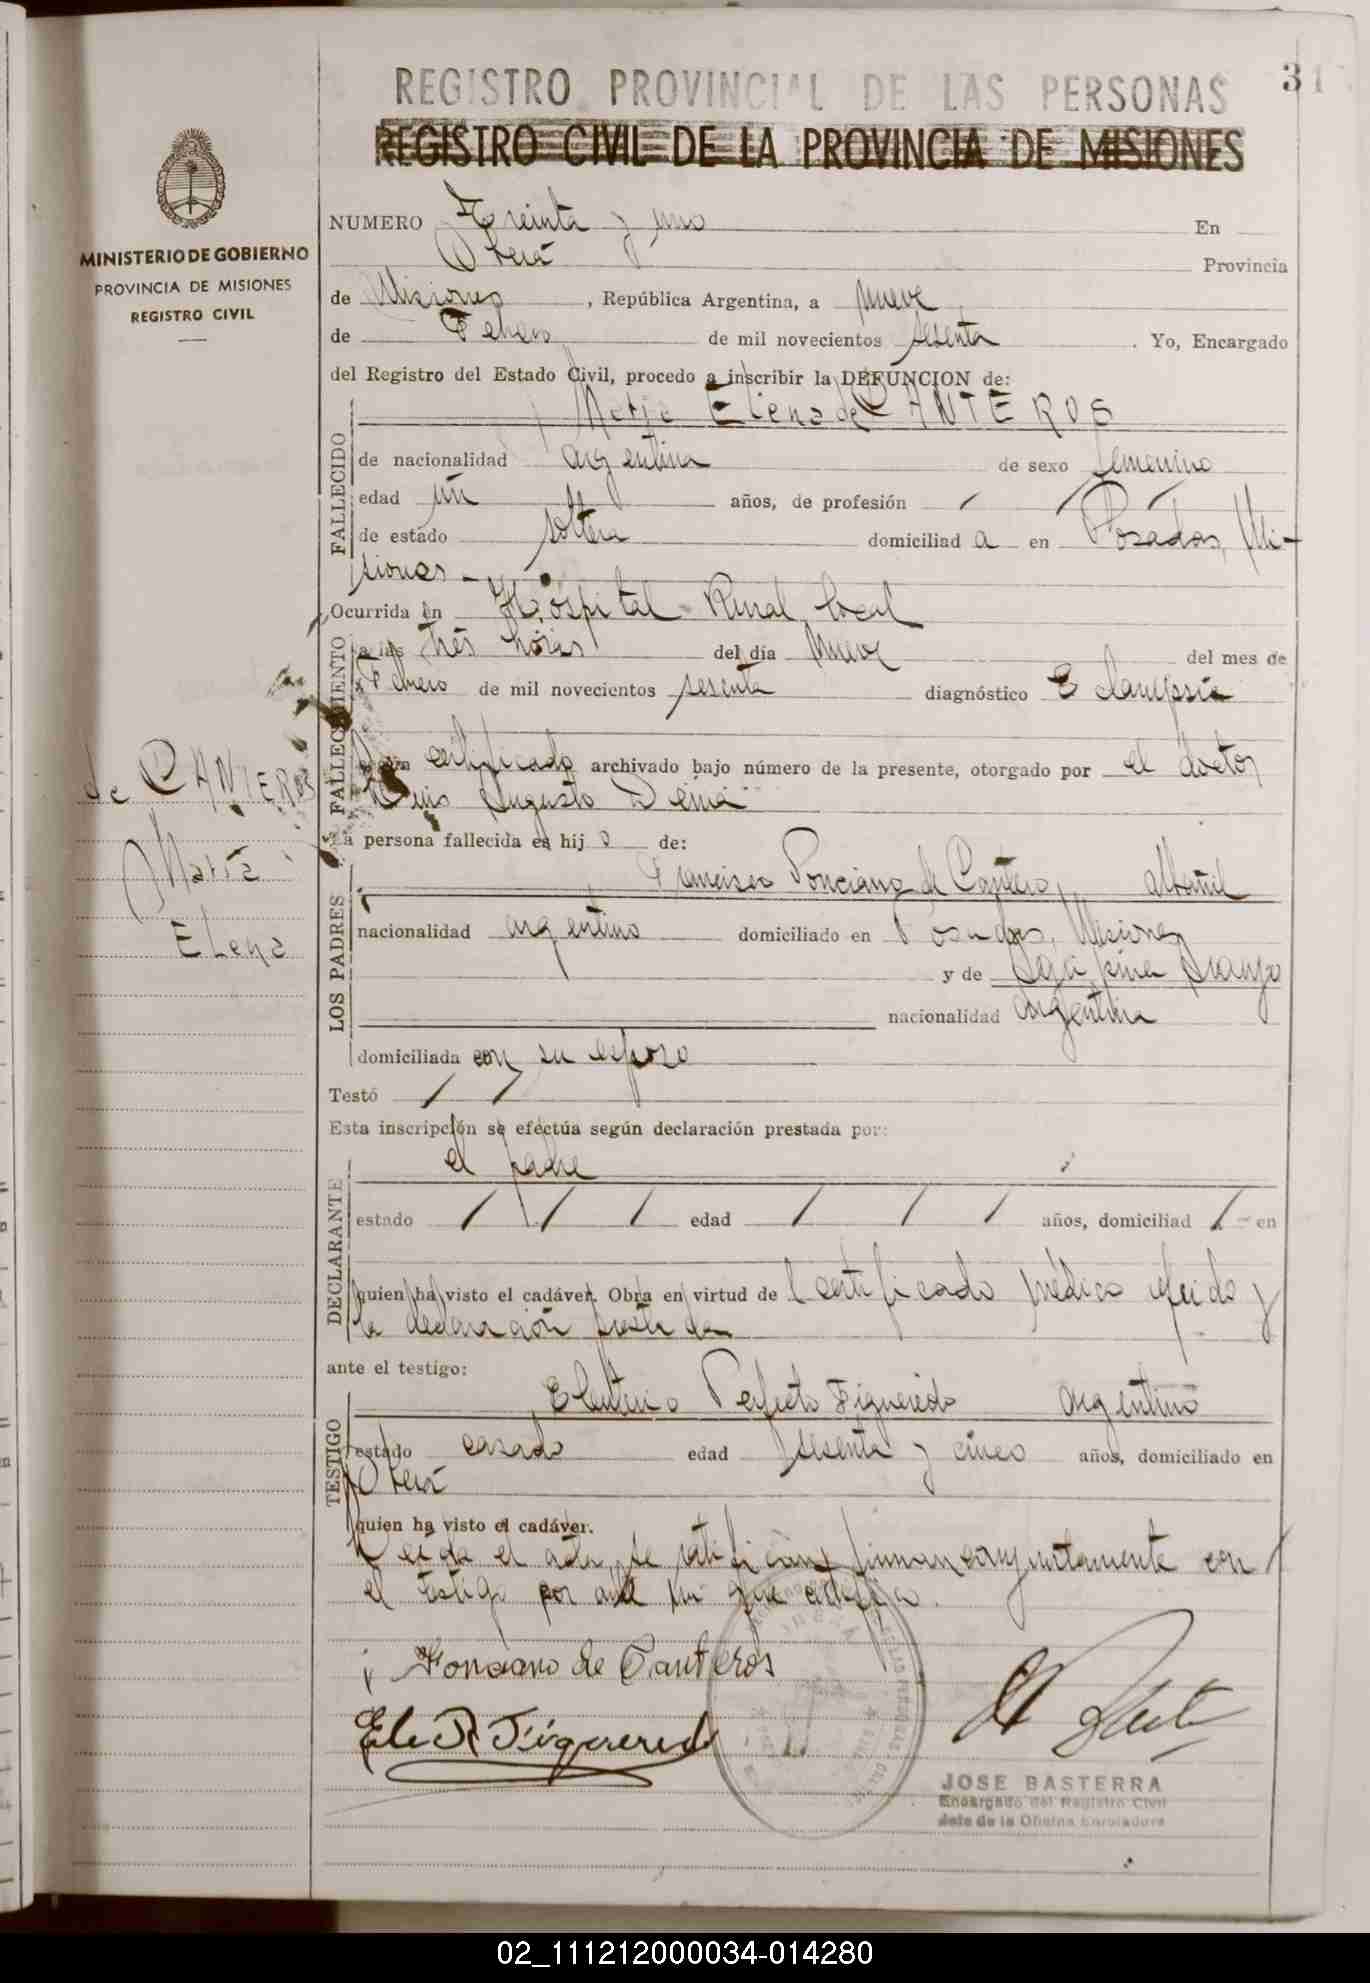 31
REGISTRO PROVINCIAL DE LAS PERSONAS
REGISTRO CIVIL DE LA PROVINCIA DE MISIONES
MINISTERIO DE GOBIERNO
PROVINCIA DE MISIONES
REGISTRO CIVIL
NUMERO Treinta y uno En
Oberá Provincia
de Misiones, República Argentina, a nueve
de Febrero de mil novecientos sesenta. Yo, Encargado
del Registro del Estado Civil, procedo a inscribir la DEFUNCION de:
María Elena de CANTEROS
FALLECIDO
de nacionalidad argentina de sexo femenino
edad un años, de profesión / / /
de estado soltera domiciliad a en Posadas, Mi-
siones -
Ocurrida en Hospital Rural local
FALLECIMIENTO
a las tres horas del día nueve del mes de
Febrero de mil novecientos sesenta diagnóstico Eclampsia
certificado archivado bajo número de la presente, otorgado por el doctor
Luis Augusto
de CANTEROS
María
Elena
La persona fallecida es hij a de:
LOS PADRES
Francisco Ponciano de Cantero, albañil
nacionalidad argentino domiciliado en Posadas, Misiones
y de Agapina Araujo
nacionalidad argentina
domiciliada con su esposo
Testó / /
Esta inscripción se efectúa según declaración prestada por:
DECLARANTE
el padre
estado / / / edad / / / años, domiciliad / en
quien ha visto el cadáver. Obra en virtud de l certificado médico referido y
la declaración prestada
ante el testigo:
TESTIGO
Eleuterio Perfecto Figueredo argentino
estado casado edad sesenta y cinco años, domiciliado en
Oberá
quien ha visto el cadáver.
Leida el acta, se ratifican y firman conjuntamente con
el testigo por ante mi que certifico.
Ponciano de Canteros
Ele P Figueredo
JOSE BASTERRA
Encargado del Registro Civil
Jefe de la Oficina Enroladora
02_111212000034-014280